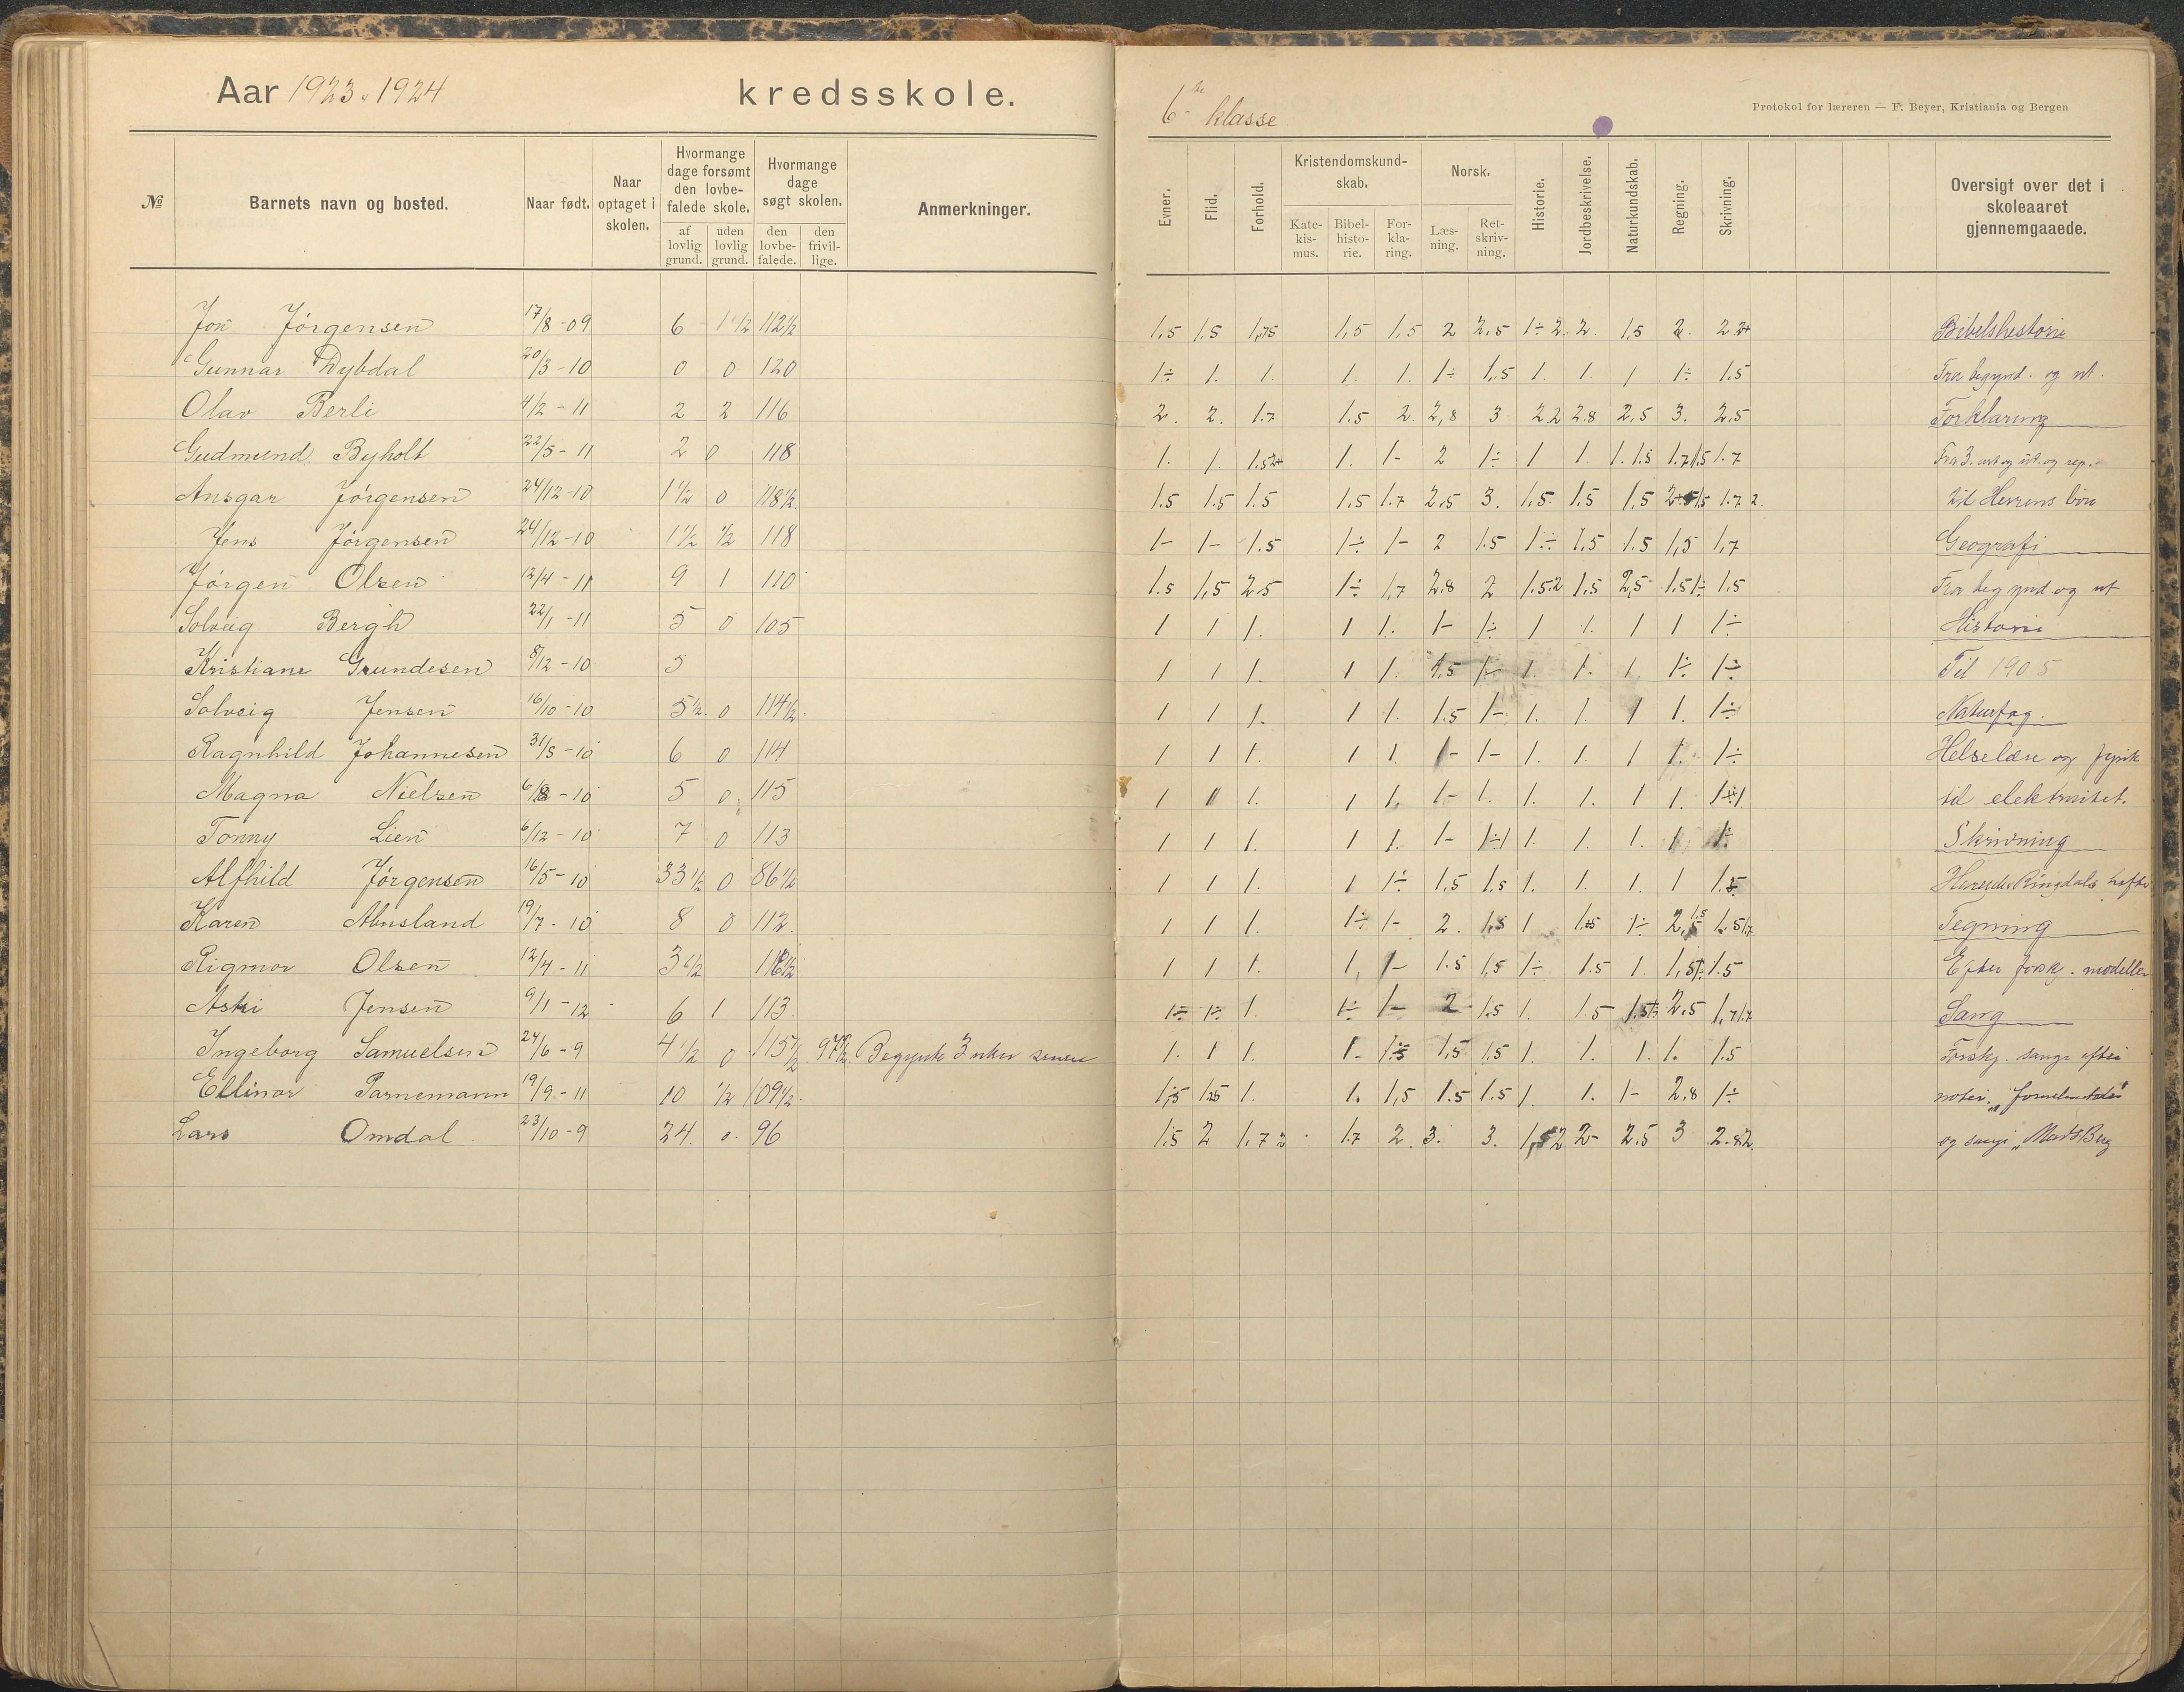 Aar 1923-1924 kredsskole.
6te klasse
Protokol for læreren — F. Beyer, Kristiania og Bergen
№ Barnets navn og bosted. Naar født. Naar optaget i skolen. Hvormange dage forsømt den lovbefalede skole. af lovlig grund. uden lovlig grund. Hvormange dage søgt skolen. den lovbefalede. den frivillige. Anmerkninger.
Evner. Flid. Forhold. Kristendomskundskab. Katekismus. Bibelhistorie. Forklaring. Norsk. Læsning. Retskrivning. Historie. Jordbeskrivelse. Naturkundskab. Regning. Skrivning. Oversigt over det i skoleaaret gjennemgaaede.
Jon Jörgensen 17/8-09 6 1 1/2 112 1/2 1,5 1,5 1,75 1,5 1,5 2 2,5 1÷2 2. 1,5 2. Bibelshistorie
Gunnar Dybdal 20/3-10 0 0 120 1÷ 1. 1. 1. 1. 1÷ 1,5 1. 1. 1 1÷ 1.5 Fra begynd. og ut.
Olav Berli 4/2-11 2 2 116 2. 2. 1.7 1.5 2. 2,8 3 2.2 2.8 2,5 3. 2.5 Forklaring
Gudmund Byholt 22/5-11 2 0 118 1. 1. 1. 1- 2 1÷ 1 1. 1.7
Ansgar Jörgensen 24/12-10 1 1/2 0 118 1/2 1.5 1.5 1.5 1.5 1.7 2,5 3. 1,5 1.5 1,5 1.7 2. til Herrens bön
Jens Jörgensen 24/12-10 1 1/2 1/2 118 1- 1- 1.5 1÷ 1- 2 1.5 1÷ 1,5 1.5 1,5 1,7 Geografi
Jörgen Olsen 12/4-11 9 1 110 1.5 1,5 2.5 1÷ 1,7 2.8 2 1.5 2 1.5 2,5 1.5 1÷ 1.5 Fra begynd og ut
Solveig Bergh 22/1-11 5 0 105 1 1 1. 1 1. 1- 1÷ 1 1. 1 1 1÷ Historie
Kristiane Grundesen 8/12-10 5 1 1 1. 1 1. 1,5 1- 1. 1. 1. 1÷ 1÷ Til 1905
Solveig Jensen 16/10-10 5 1/2 0 114 1/2 1 1 1. 1 1. 1.5 1- 1. 1. 1 1. 1÷ Naturfag.
Ragnhild Johannesen 31/5-10 6 0 114 1 1 1. 1 1. 1- 1- 1. 1. 1 1. 1÷ Helselære og fysik
Magna Nielsen 5 0 115 1 1 1. 1 1. 1- 1. 1. 1. 1 1. til elektrisitet.
Tonny Lien 6/12-10 7 0 113 1 1 1. 1 1. 1- 1÷1 1. 1. 1. 1 1÷ Skrivning
Alfhild Jörgensen 16/5-10 33 1/2 0 86 1/2 1 1 1. 1 1÷ 1,5 1.5 1. 1. 1. 1 1.5
Karen Abusland 19/7-10 8 0 112. 1 1 1. 1÷ 1- 2. 1,5 1 1÷ 2,5 Tegning
Rigmor Olsen 12/4-11 3 1/2 116 1/2 1 1 1. 1, 1- 1.5 1,5 1÷ 1.5 1. 1.5 Efter forsk. modeller
Jensen 9/1-12 6 1 113. 1÷ 1÷ 1. 1÷ 1- 2 1.5 1. 1.5 2.5 Sang
Ingeborg Samuelsen 24/6-9 4 1/2 0 115 1/2 Begynte 3 uker senere 1. 1 1. 1- 1,5 1.5 1. 1. 1. 1. 1.5 Forskj. sange efter
Ellinor Parnemann 19/9-11 10 1/2 109 1/2 1,5 1. 1. 1,5 1.5 1.5 1. 1. 1- 2,8 1÷ noter.
Lars Omdal 23/10-9 24. 0. 96 1.5 2 1.7 2 1.7 2. 3. 3. 2- 2.5 3 og sange „Mads Berg